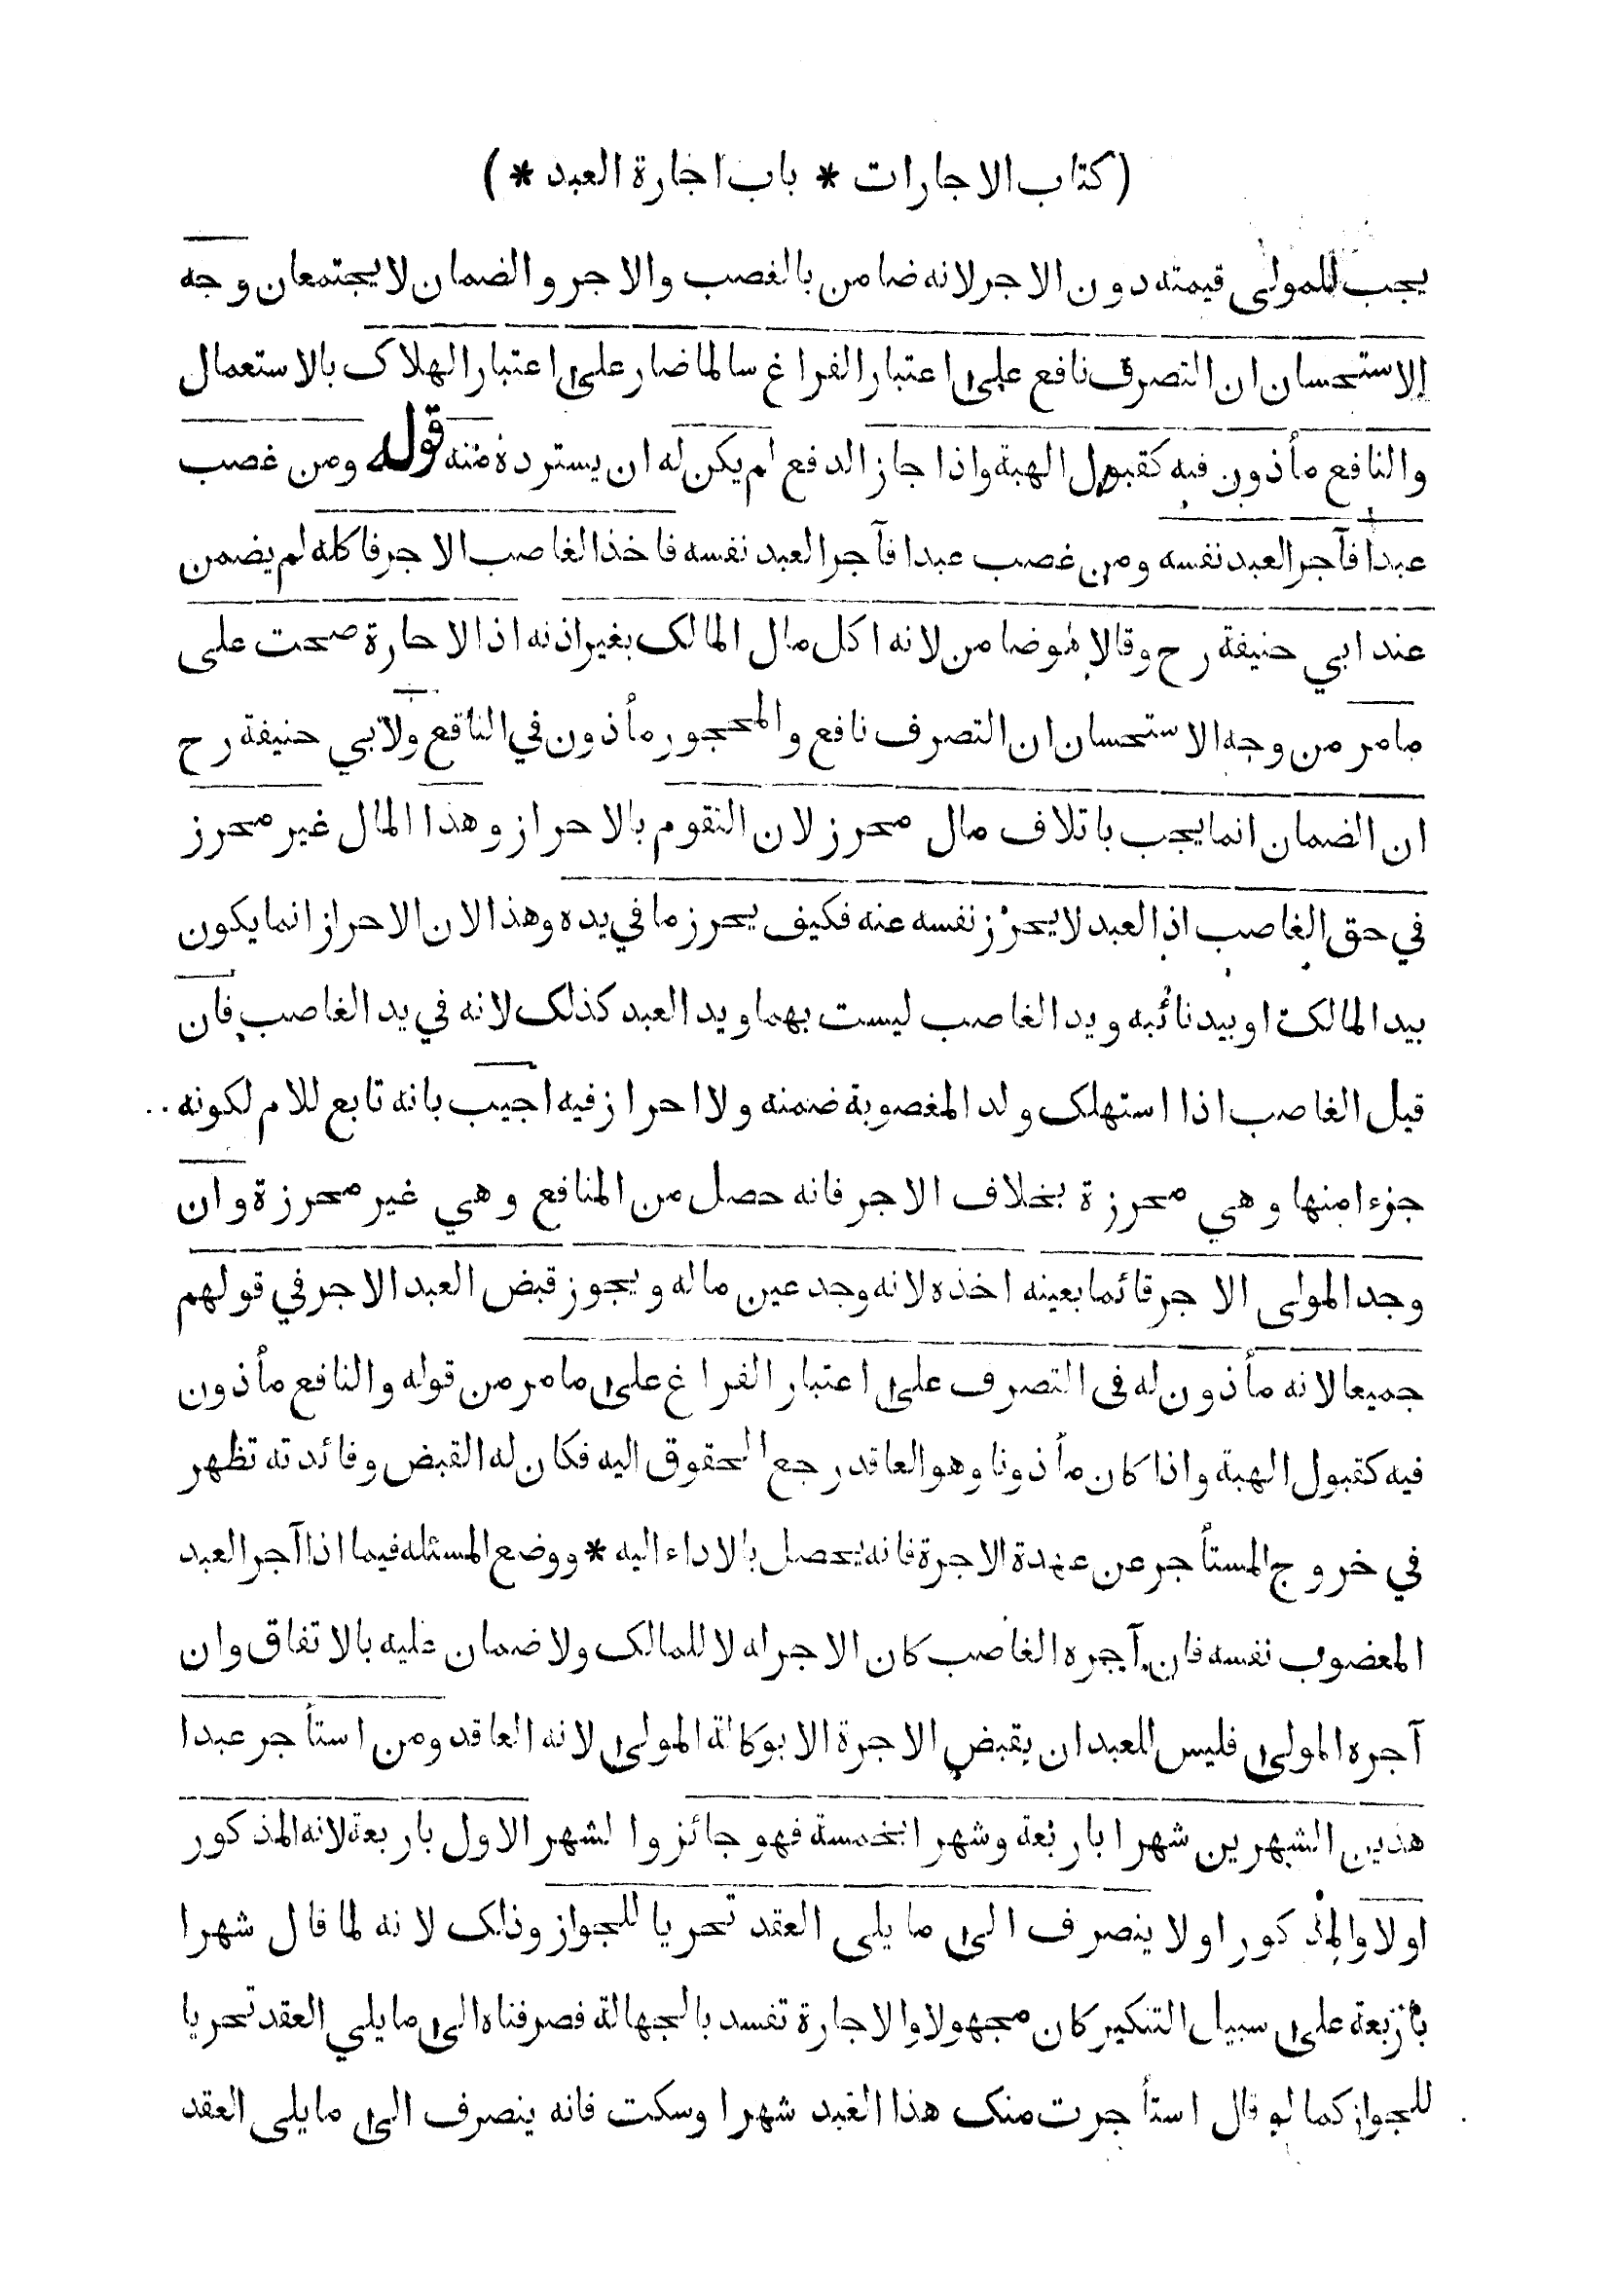 (كتاب الاجارات * باب اجارة العبد *)
يجب للمولى قيمته دون الاجر لانه ضامن بالغصب والاجر والضمان لا يجتمعان وجه
الاستحسان ان التصرف نافع على اعتبار الفراغ سالما ضار على اعتبار الهلاك بالاستعمال
والنافع مأذون فيه كقبول الهبة واذا جاز الدفع لم يكن له ان يسترده منه قوله ومن غصب
عبدا فآجر العبد نفسه ومن غصب عبدا فآجر العبد نفسه فاخذ الغاصب الاجر فاكله لم يضمن
عند ابي حنيفة رح وقالا هو ضامن لانه اكل مال المالك بغير اذنه اذ الاجارة صحت على
مامر من وجه الاستحسان ان التصرف نافع والمحجور مأذون في النافع ولابي حنيفة رح
ان الضمان انما يجب باتلاف مال محرز لان التقوم بالاحراز وهذا المال غير محرز
في حق الغاصب اذ العبد لا يحرز نفسه عنه فكيف يحرز ما في يده وهذا لان الاحراز انما يكون
بيد المالك او بيد نائبه ويد الغاصب ليست بهما ويد العبد كذلك لانه في يد الغاصب فان
قيل الغاصب اذا استهلك ولد المغصوبة ضمنه ولا احراز فيه اجيب بانه تابع للام لكونه
جزء امنها وهي محرزة بخلاف الاجر فانه حصل من المنافع وهي غير محرزة وان
وجد المولى الاجر قائما بعينه اخذه لانه وجد عين ماله ويجوز قبض العبد الاجر في قولهم
جميعا لانه مأذون له في التصرف على اعتبار الفراغ على مامر من قوله والنافع مأذون
فيه كقبول الهبة واذا كان مأذونا وهو العاقد رجع الحقوق اليه فكان له القبض وفائدته تظهر
في خروج المستأجر عن عهدة الاجرة فانه يحصل بالاداء اليه * ووضع المسئله فيما اذا آجر العبد
المغصوب نفسه فان آجره الغاصب كان الاجر له لا للمالك ولا ضمان عليه بالاتفاق وان
آجره المولى فليس للعبد ان يقبض الاجرة الا بوكالة المولى لانه العاقد ومن استأجر عبدا
هذين الشهرين شهرا باربعة وشهرا بخمسة فهو جائز والشهر الاول باربعة لانه المذكور
اولا والمذكور اولا ينصرف الى ما يلي العقد تحريا للجواز وذلك لانه لما قال شهرا
باربعة على سبيل التنكير كان مجهولا والاجارة تفسد بالجهالة فصرفناه الى ما يلي العقد تحريا
للجواز كما لو قال استأجرت منك هذا العبد شهرا وسكت فانه ينصرف الى ما يلي العقد